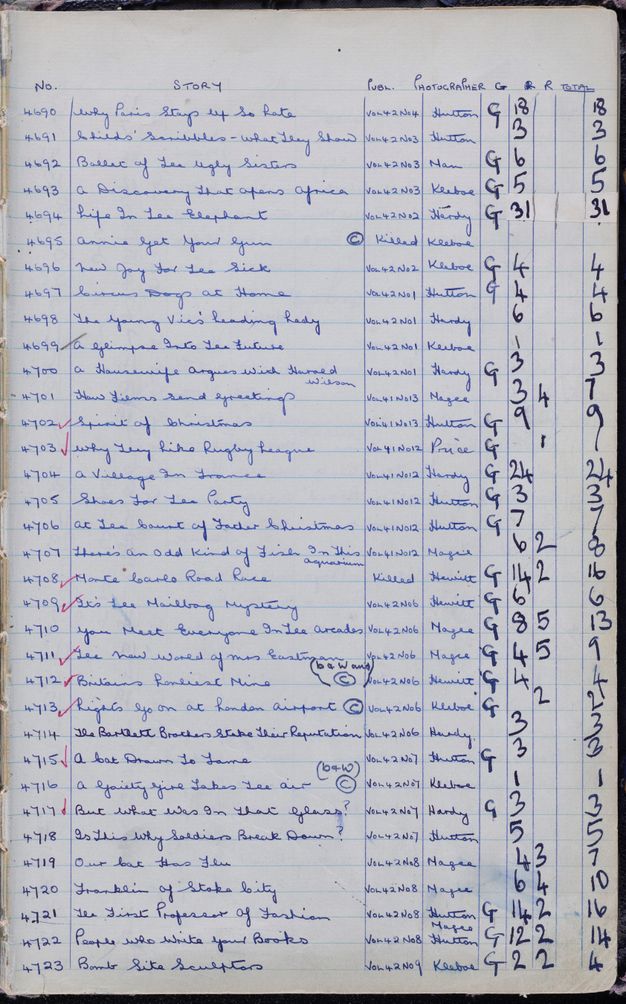 No. STORY PUBL. PHOTOGRAPHER G R R TOTAL
4690 Why Paris Stays Up So Late Vol 42 No 4 Hutton G 18 18
4691 Childs' Scribbles - What They Show Vol 42 No 3 Hutton 3 3
4692 Ballet of Lee Ugly Sisters Vol 42 No 3 Man G 6 6
4693 A Discovery That Opens Africa Vol 42 No 3 Kleboe G 5 5
4694 Life In Lee Elephant Vol 42 No 2 Hardy G 31 31
4695 Annie Get Your Gun © Killed Kleboe
4696 New Joy For Lee Sick Vol 42 No 2 Kleboe G 4 4
4697 Circus Dogs at Home Vol 42 No 1 Hutton G 4 4
4698 The Young Vic's Leading Lady Vol 42 No 1 Hardy 6 6
4699 A Glimpse Into Lee Future Vol 42 No 1 Kleboe 1 1
4700 A Housewife Argues With Harold Wilson Vol 42 No 1 Hardy G 3 3
4701 How Firms Send Greetings Vol 41 No 13 Magee 3 4 7
4702 Spirit of Christmas Vol 41 No 13 Hutton G 9 9
4703 Why They Like Rugby League Vol 41 No 12 Price G 1 1
4704 A Village In France Vol 41 No 12 Hardy G 24 24
4705 Shoes For Lee Party Vol 41 No 12 Hutton G 3 3
4706 At Lee Court of Father Christmas Vol 41 No 12 Hutton G 7 7
4707 There's An Odd Kind of Fish In This Aquarium Vol 41 No 12 Magee 6 2 8
4708 Monte Carlo Road Race Killed Hewitt G 14 2 16
4709 It's Lee Mailbag Mystery Vol 42 No 6 Hewitt G 6 6
4710 You Meet Everyone In Lee Arcades Vol 42 No 6 Magee G 8 5 13
4711 Lee New World of Mrs Eastman Vol 42 No 6 Magee G 4 5 9
4712 Britains Loneliest Mine (b & W and ©) Vol 42 No 6 Hewitt G 4 4
4713 Lights Go on at London Airport © Vol 42 No 6 Kleboe G 2 2
4714 The Bartlett Brothers Stake Their Reputation Vol 42 No 6 Hardy 3 3
4715 A Cat Drawn To Fame Vol 42 No 7 Hutton G 3 3
4716 A Gaiety Girl Takes Lee Air (b & W) © Vol 42 No 7 Kleboe 1 1
4717 But What Was In That Glass? Vol 42 No 7 Hardy G 3 3
4718 Is This Why Soldiers Break Down? Vol 42 No 7 Hutton 5 5
4719 Our Cat Has Flu Vol 42 No 8 Magee 4 3 7
4720 Franklin of Stoke City Vol 42 No 8 Magee 6 4 10
4721 Lee First Professor Of Fashion Vol 42 No 8 Hutton G 14 2 16
4722 People Who Write Your Books Vol 42 No 8 Magee Hutton G 12 2 14
4723 Bomb Site Sculptors Vol 42 No 9 Kleboe G 2 2 4